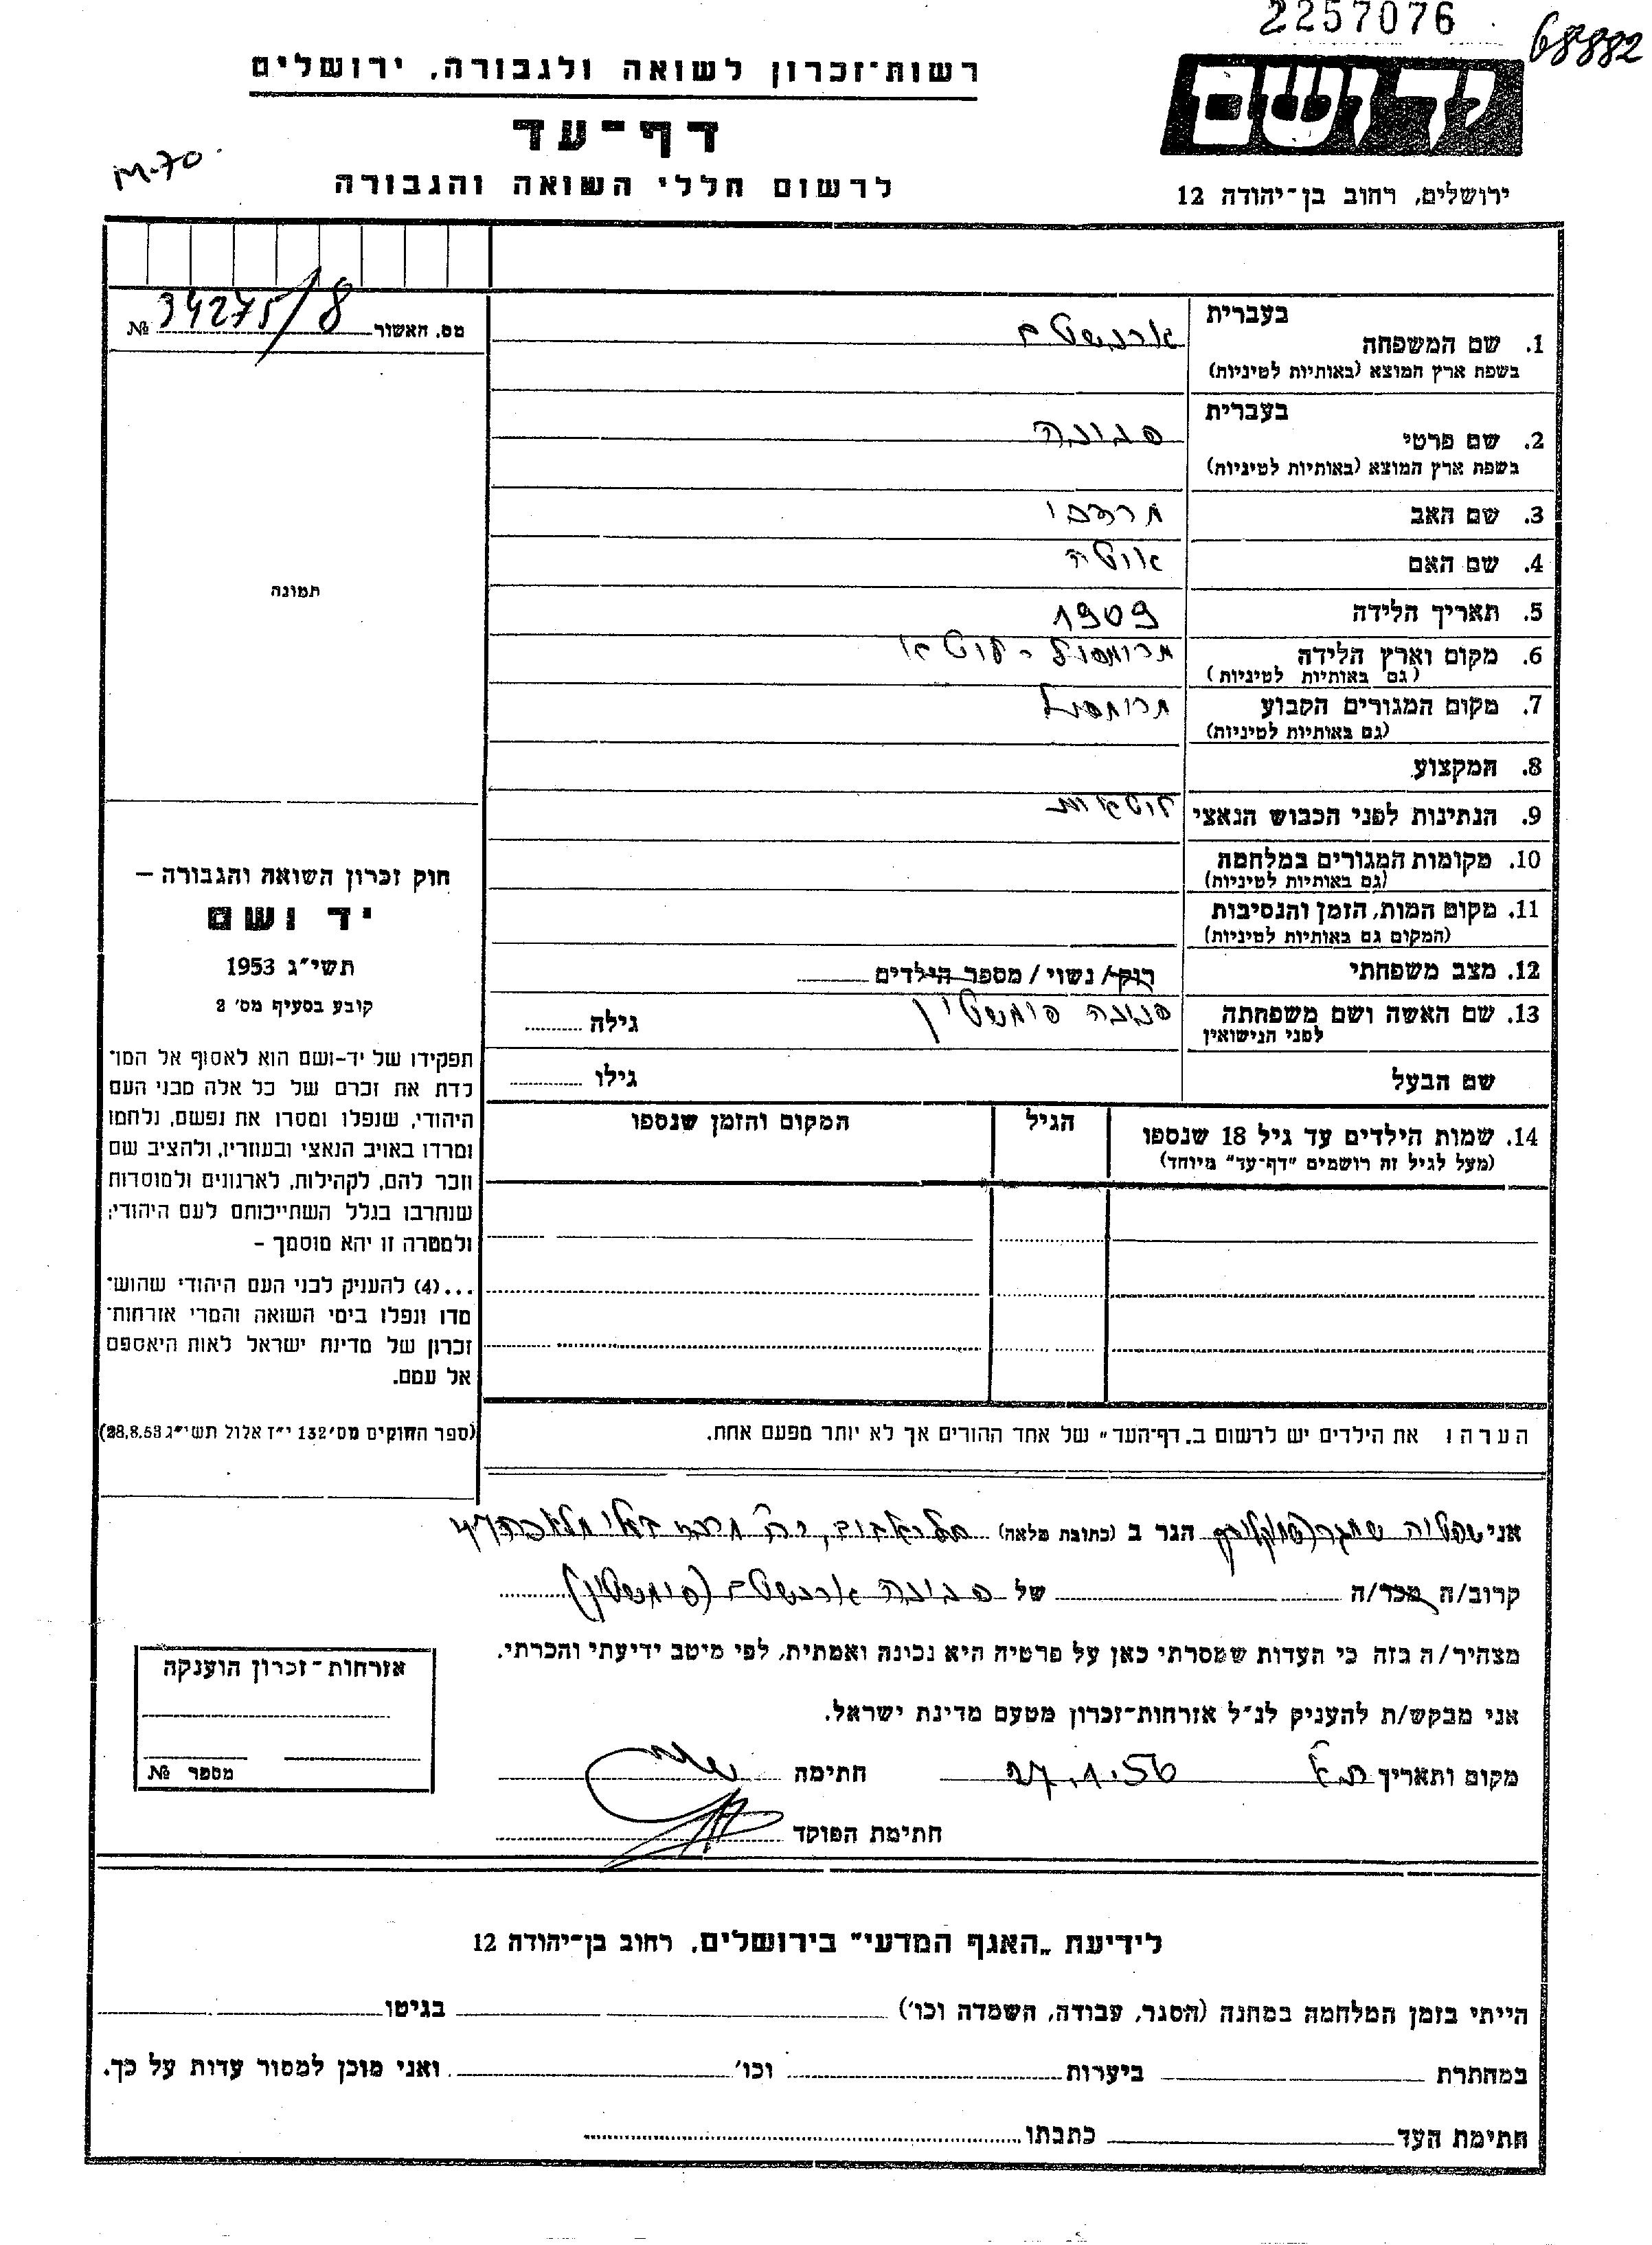 2257076
68882
רשות־זכרון לשואה ולגבורה, ירושלים
דף־עד
לרשום חללי השואה והגבורה
M-70
יד ושם
ירושלים, רחוב בן־יהודה 12
מס. האשור 34275/8 №
תמונה
חוק זכרון השואה והגבורה –
יד ושם
תשי״ג 1953
קובע בסעיף מס׳ 2
תפקידו של יד-ושם הוא לאסוף אל המו־
לדת את זכרם של כל אלה מבני העם
היהודי, שנפלו ומסרו את נפשם, נלחמו
ומרדו באויב הנאצי ובעוזריו, ולהציב שם
וזכר להם, לקהילות, לארגונים ולמוסדות
שנחרבו בגלל השתייכותם לעם היהודי;
ולמטרה זו יהא מוסמך –
...(4) להעניק לבני העם היהודי שהוש־
מדו ונפלו בימי השואה והמרי אזרחות־
זכרון של מדינת ישראל לאות היאספם
אל עמם.
(ספר החוקים מס׳ 132 י״ז אלול תשי״ג 28.8.53)
בעברית
1. שם המשפחה
בשפת ארץ המוצא (באותיות לטיניות)
בעברית
2. שם פרטי
בשפת ארץ המוצא (באותיות לטיניות)
3. שם האב מרדכי
4. שם האם
5. תאריך הלידה 1909
6. מקום וארץ הלידה
(גם באותיות לטיניות)
7. מקום המגורים הקבוע
(גם באותיות לטיניות)
8. המקצוע
9. הנתינות לפני הכבוש הנאצי
10. מקומות המגורים במלחמה
(גם באותיות לטיניות)
11. מקום המות, הזמן והנסיבות
(המקום גם באותיות לטיניות)
12. מצב משפחתי רוק/ נשוי / מספר הילדים
13. שם האשה ושם משפחתה גילה
לפני הנישואין
שם הבעל גילו
14. שמות הילדים עד גיל 18 שנספו הגיל המקום והזמן שנספו
(מעל לגיל זה רושמים "דף־עד" מיוחד)
הערה: את הילדים יש לרשום ב„דף־העד" של אחד ההורים אך לא יותר מפעם אחת.
אני הגר ב (כתובת מלאה)
קרוב/ה מכר/ה של
מצהיר/ה בזה כי העדות שמסרתי כאן על פרטיה היא נכונה ואמתית, לפי מיטב ידיעתי והכרתי.
אני מבקש/ת להעניק לנ״ל אזרחות־זכרון מטעם מדינת ישראל.
מקום ותאריך ת״א 27.1.56 חתימה
חתימת הפוקד
אזרחות־זכרון הוענקה
מספר №
לידיעת „האגף המדעי" בירושלים, רחוב בן־יהודה 12
הייתי בזמן המלחמה במחנה (הסגר, עבודה, השמדה וכו׳) בגיטו
במחתרת ביערות וכו׳ ואני מוכן למסור עדות על כך.
חתימת העד כתבתו